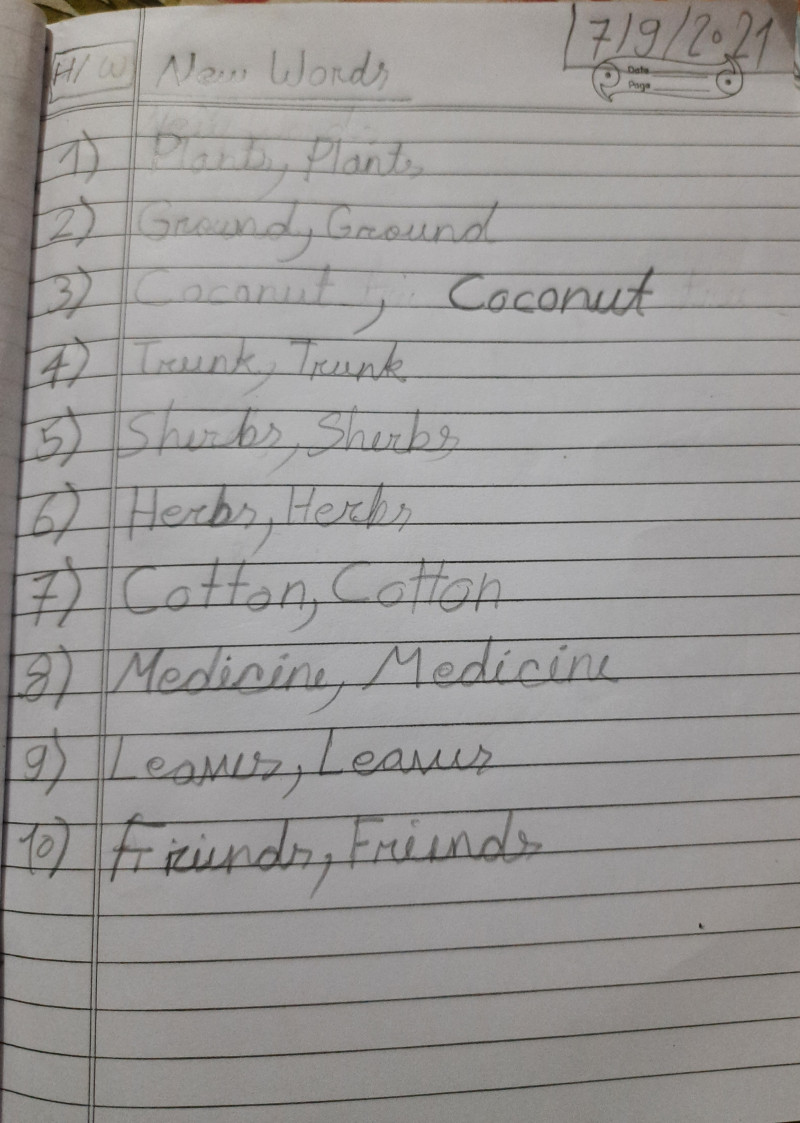 17/9/2021
H/W New Words
Date
Page
1) Plants, Plants
2) Ground, Ground
3) Coconut, Coconut
4) Trunk, Trunk
5) Sherbs, Sherbs
6) Herbs, Herbs
7) Cotton, Cotton
8) Medicine, Medicine
9) Leaves, Leaves
10) Friends, Friends